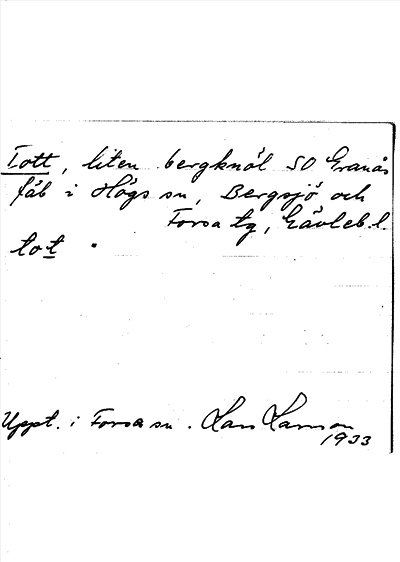 Tott, liten bergknöl SO Granås
fäb i Högs sn, Bergsjö och
Forsa tg, Gävleb. l.
tot .
Uppt. i Forsa sn. Lars Larsson
1933